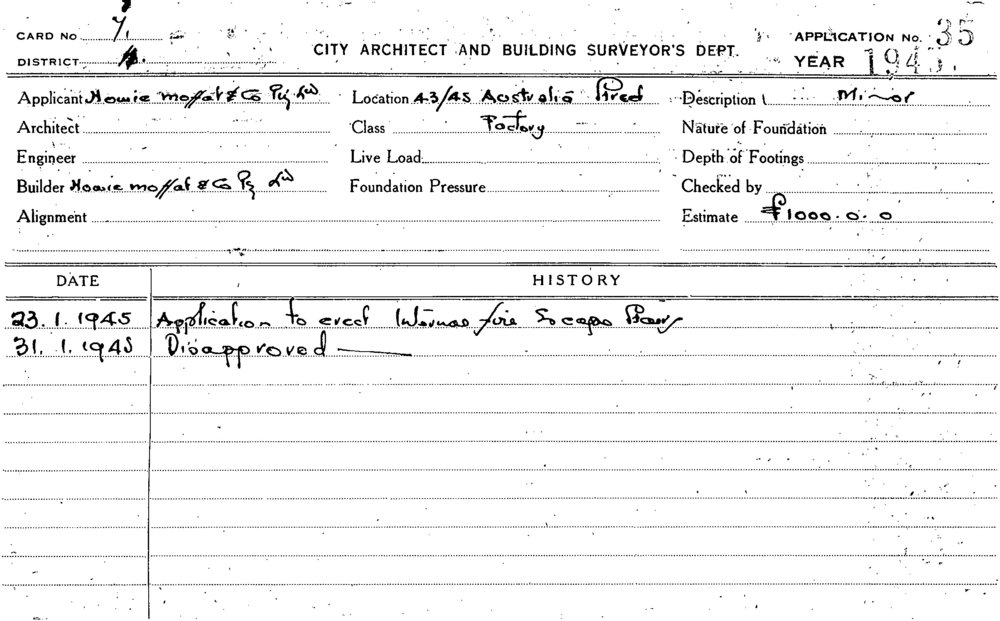 CARD No 7.
DISTRICT
CITY ARCHITECT AND BUILDING SURVEYOR'S DEPT.
APPLICATION No. 35
YEAR 1945.
Applicant Howie Moffat & Co Pty Ltd
Location 43/45 Australia Street
Description Minor
Architect
Class Factory
Nature of Foundation
Engineer
Live Load
Depth of Footings
Builder Howie Moffat & Co Pty Ltd
Foundation Pressure
Checked by
Alignment
Estimate £1000.0.0
DATE HISTORY
23.1.1945 Application to erect Internal fire Escape Stairs
31.1.1945 Disapproved